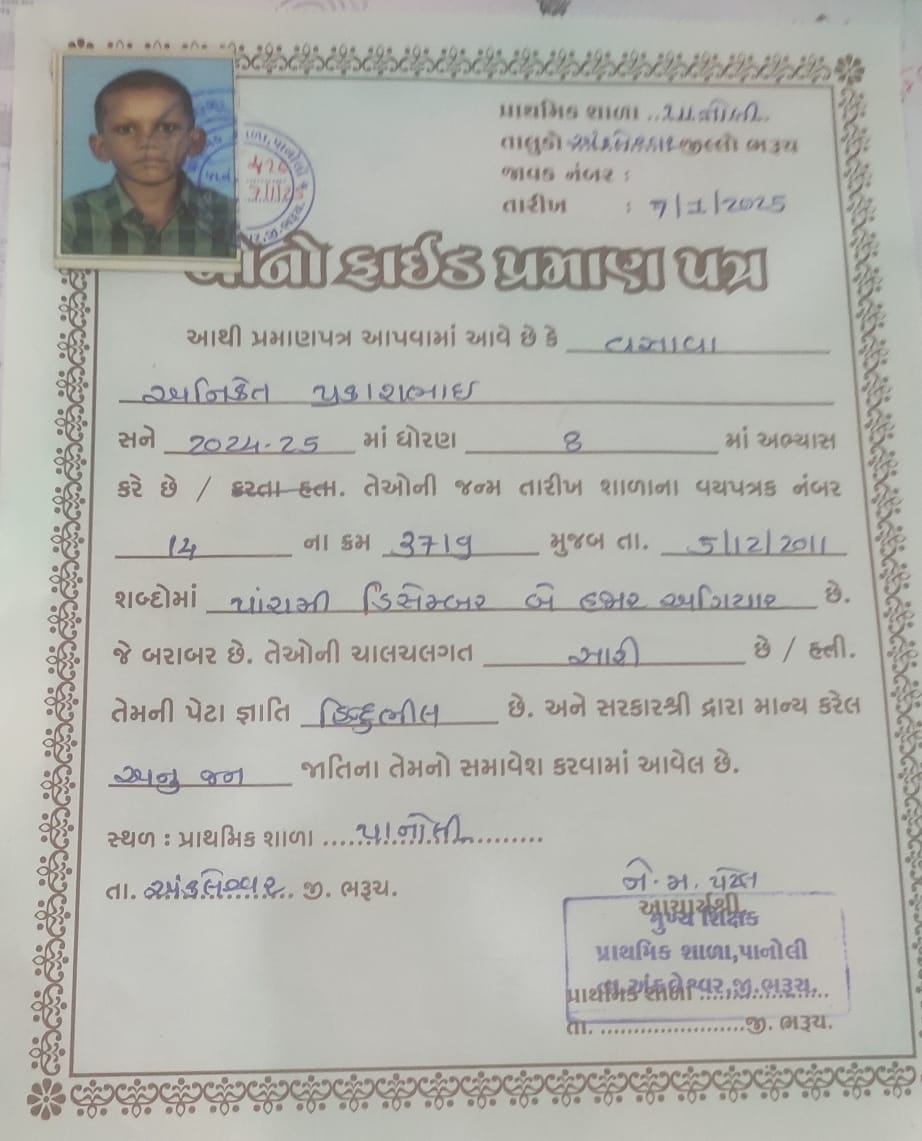 પ્રાથમિક શાળા ..પાનોલી.
તાલુકો અંકલેશ્વર જીલ્લો ભરૂચ
જાવક નંબર :
તારીખ : 7/1/2025
420
7/1/25
બોનો ફાઈડ પ્રમાણ પત્ર
આથી પ્રમાણપત્ર આપવામાં આવે છે કે વસાવા
અનિકેત પ્રકાશભાઇ
સને 2024-25 માં ધોરણ 8 માં અભ્યાસ
કરે છે / કરતા હતા. તેઓની જન્મ તારીખ શાળાના વયપત્રક નંબર
14 ના ક્રમ 3719 મુજબ તા. 5/12/2011
શબ્દોમાં પાંચમી ડિસેમ્બર બે હજાર અગિયાર છે.
જે બરાબર છે. તેઓની ચાલચલગત સારી છે / હતી.
તેમની પેટા જ્ઞાતિ હિન્દુભીલ છે. અને સરકારશ્રી દ્વારા માન્ય કરેલ
અનુ જન જાતિના તેમનો સમાવેશ કરવામાં આવેલ છે.
સ્થળ : પ્રાથમિક શાળા ....પાનોલી..........
તા. અંકલેશ્વર. જી. ભરૂચ.
જે. મ. પટેલ
આચાર્યશ્રી
મુખ્ય શિક્ષક
પ્રાથમિક શાળા,પાનોલી
તા.અંકલેશ્વર,જી.ભરૂચ.
પ્રાથમિક શાળા ..................
તા. ......................જી. ભરૂચ.